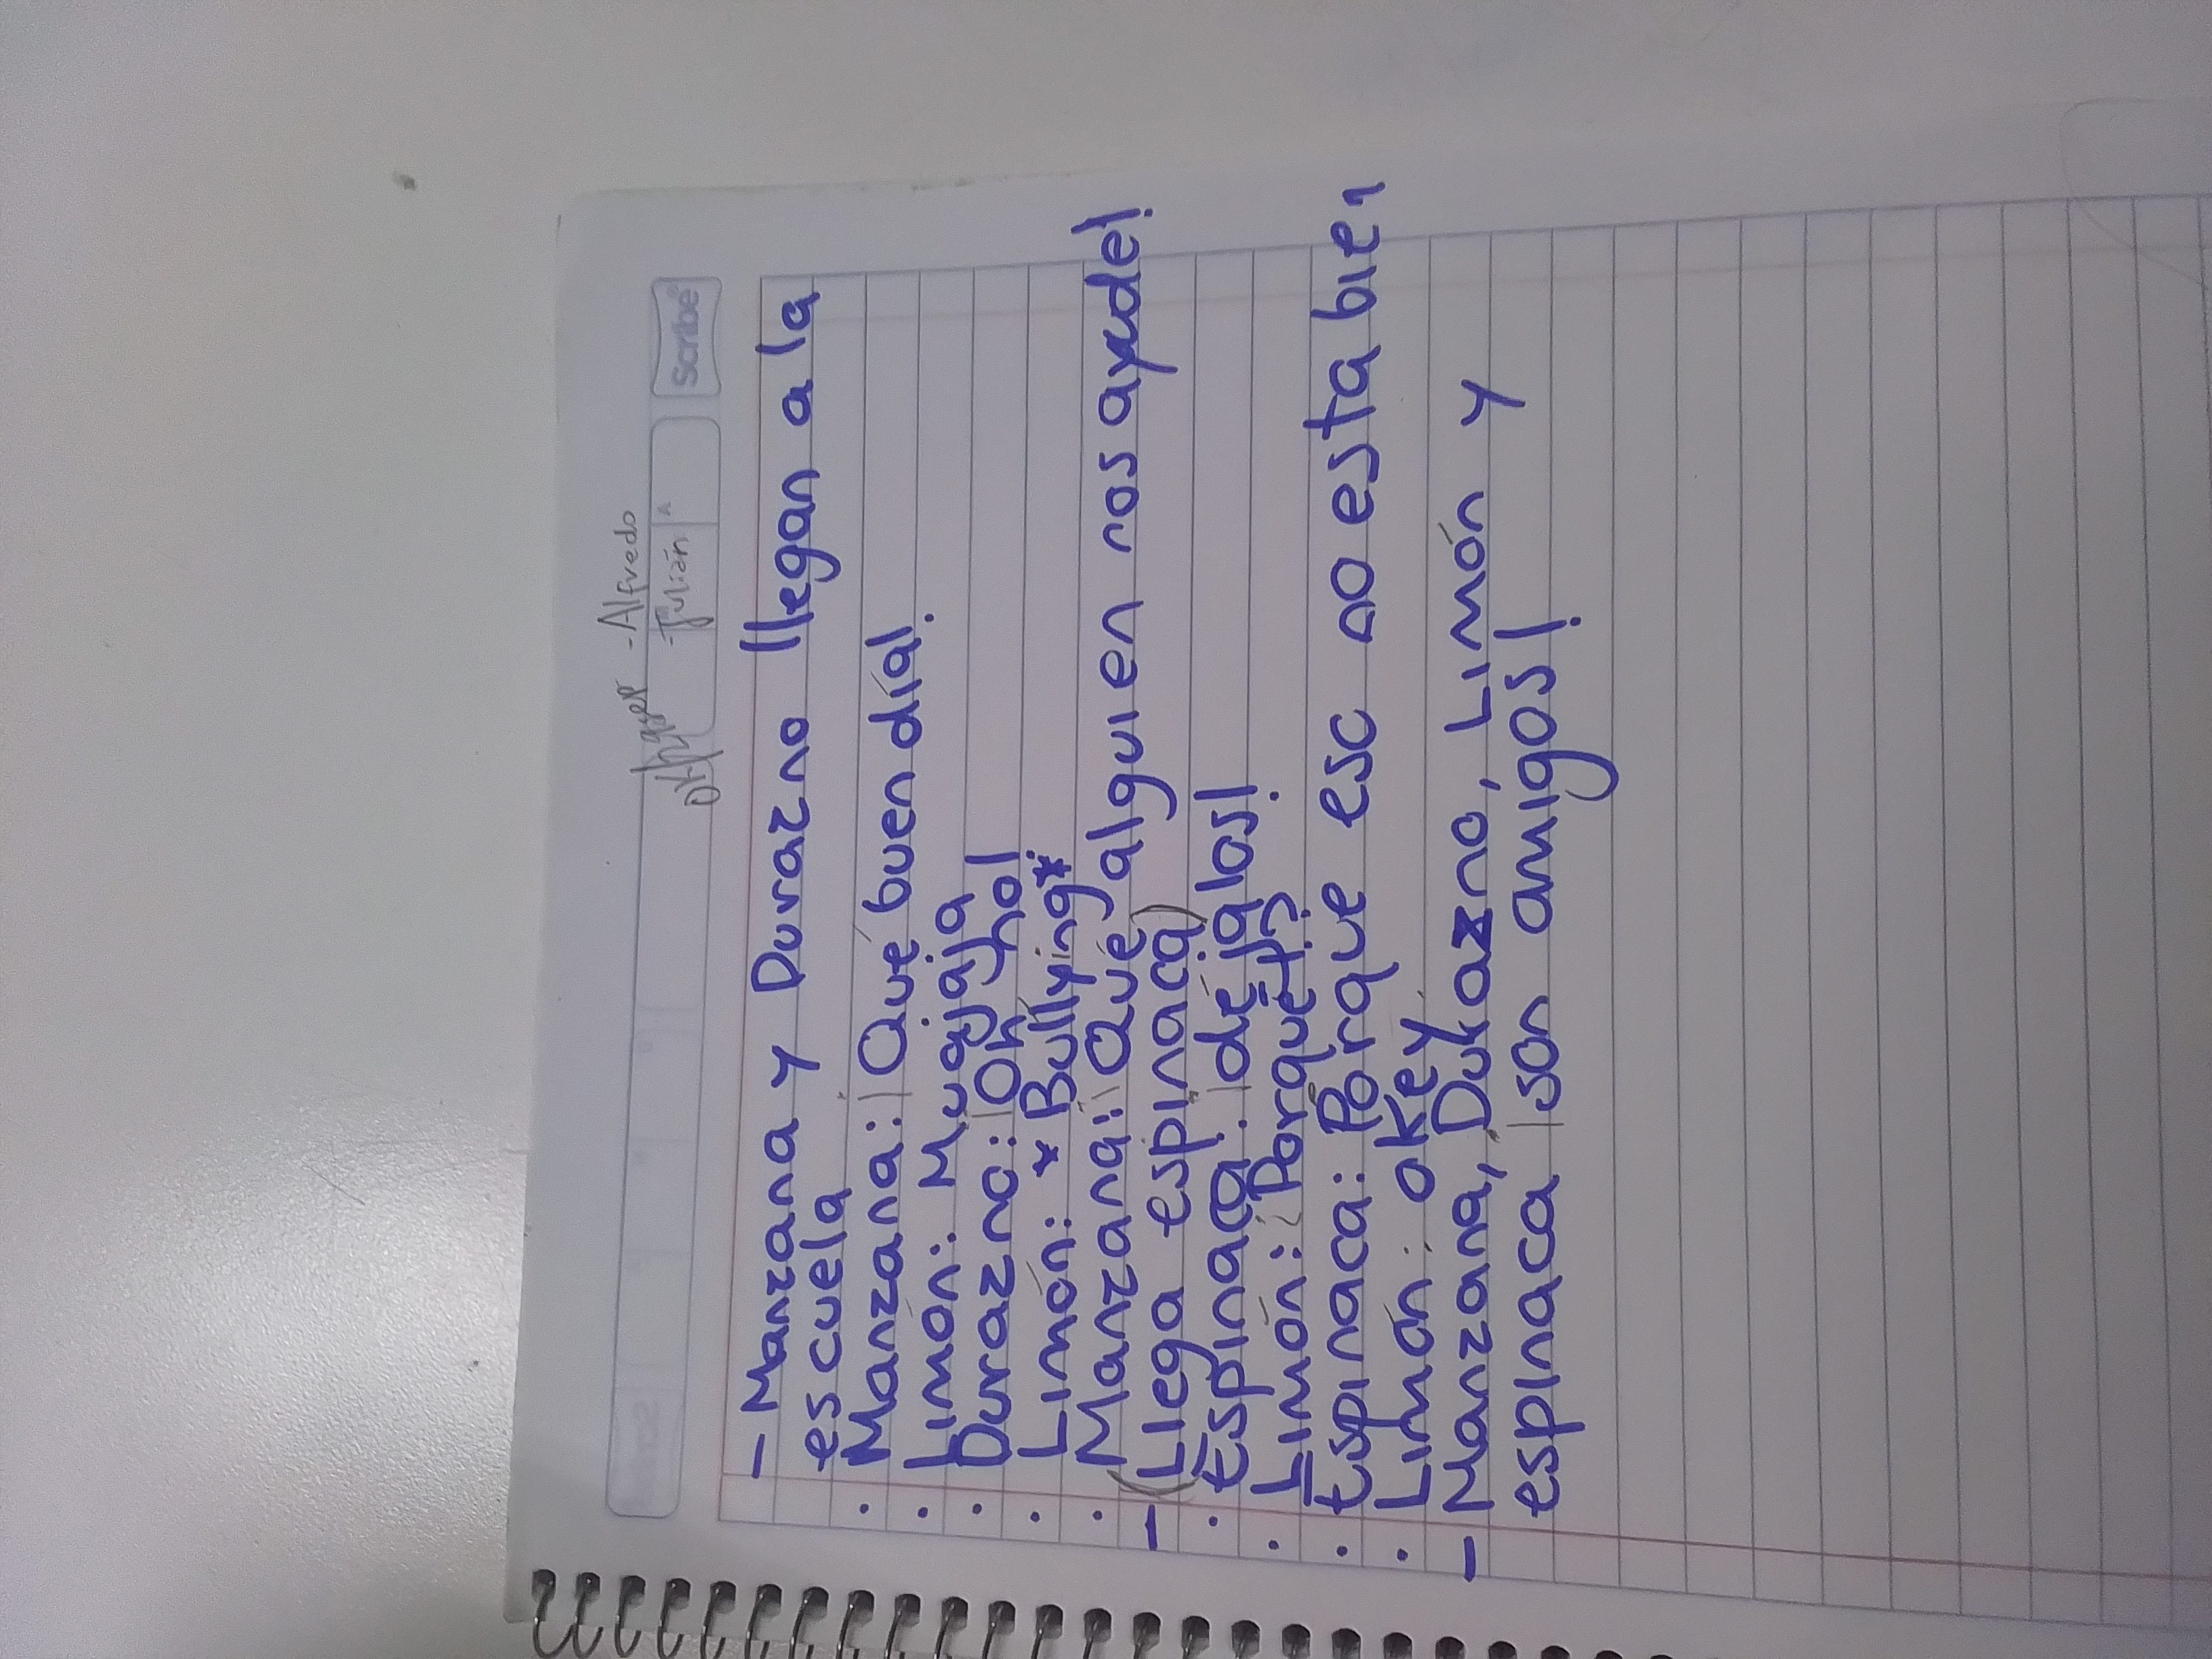 -Alfredo
-Julián
Scribe
- Manzana y Durazno llegan a la
escuela
. Manzana: ¡Qué buen día!
. Limón: Muajaja
. Durazno: ¡Oh no!
. Limón: *Bullying*
. Manzana: ¡Qué alguien nos ayude!
- (Llega espinaca)
. Espinaca: ¡déjalos!
. Limón: ¿Porqué?
. Espinaca: Porque eso no esta bien
. Limón: okey
- Manzana, Durazno, Limón y
espinaca ¡son amigos!